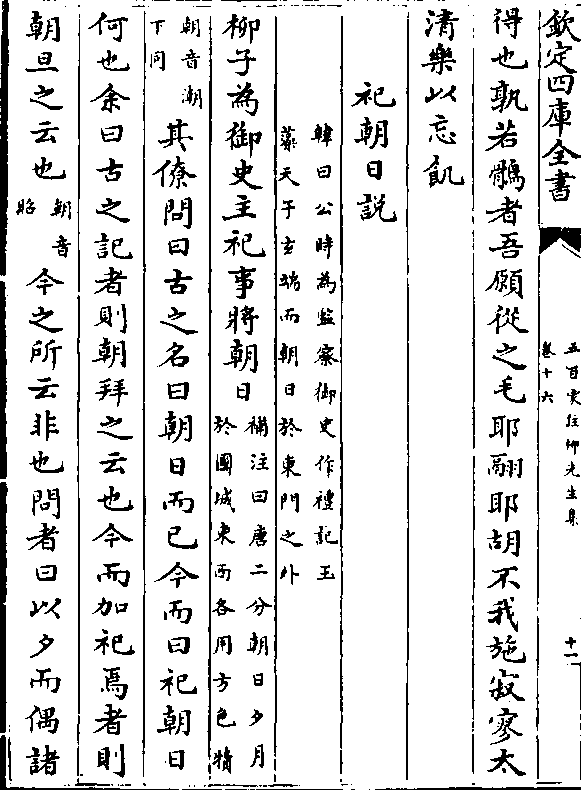 欽定四庫全書
五百家注柳先生集
卷十六
十一
得也孰若鶻者吾願從之毛耶翮耶胡不我施寂寥太
清樂以忘飢
祀朝日説
韓曰公時為監察御史作禮記玉
藻天子玄端而朝日於東門之外
柳子為御史主祀事將朝日
補注曰唐二分朝日夕月
於國城東西各用方色犢
朝音潮
下同
其僚問曰古之名曰朝日而已今而曰祀朝日
何也余曰古之記者則朝拜之云也今而加祀焉者則
朝旦之云也
朝音
昭
今之所云非也問者曰以夕而偶諸